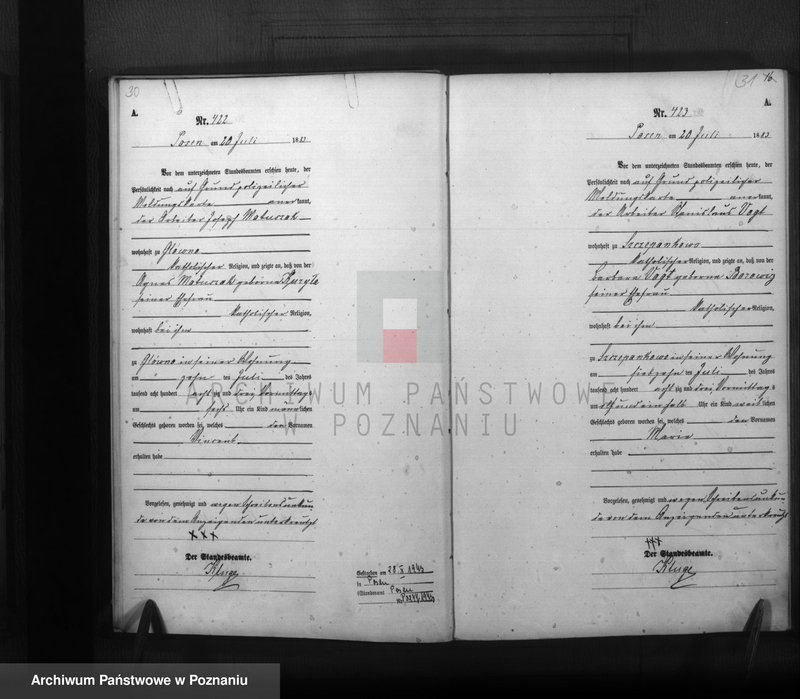 30
A.
Nr. 422
Posen am 20 Juli 1883
Vor dem unterzeichneten Standesbeamten erschien heute, der
Persönlichkeit nach auf Grund polizeilicher
Meldungskarte anerkannt,
der Arbeiter Joseph Matuszak
wohnhaft zu Glowno
katholischer Religion, und zeigte an, daß von der
Agnes Matuszak geborene
seiner Ehefrau
katholischer Religion,
wohnhaft bei ihm
zu Glowno in seiner Wohnung
am zehn ten Juli des Jahres
tausend acht hundert acht zig und drei Vormittags
um sechs Uhr ein Kind männlichen
Geschlechts geboren worden sei, welches den Vornamen
Vincent
erhalten habe
Vorgelesen, genehmigt und wegen Schreibensunkun
de von dem Anzeigenden unterkreuzt
XXX
Der Standesbeamte.
Kluge
Gestorben am 28 X 1943
in Posen
(Standesamt Posen
31 16
A.
Nr. 423
Posen am 20 Juli 1883
Vor dem unterzeichneten Standesbeamten erschien heute, der
Persönlichkeit nach auf Grund polizeilicher
Meldungskarte anerkannt,
der Arbeiter Stanislaus Vogt
wohnhaft zu Szczepankowo
katholischer Religion, und zeigte an, daß von der
Barbara Vogt geborene
seiner Ehefrau
katholischer Religion,
wohnhaft bei ihm
zu Szczepankowo in seiner Wohnung
am siebzehn ten Juli des Jahres
tausend acht hundert acht zig und drei Vormittags
um acht und einhalb Uhr ein Kind weiblichen
Geschlechts geboren worden sei, welches den Vornamen
Maria
erhalten habe
Vorgelesen, genehmigt und wegen Schreibensunkun
de von dem Anzeigenden unterkreuzt
XXX
Der Standesbeamte.
Kluge
ARCHIWUM PAŃSTWOWE
W POZNANIU
Archiwum Państwowe w Poznaniu